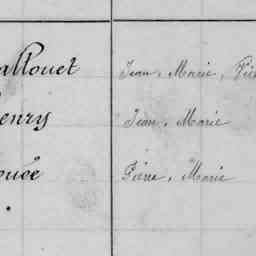 allouet Jean, Marie, Pie
enry Jean, Marie
ouée Pierre, Marie